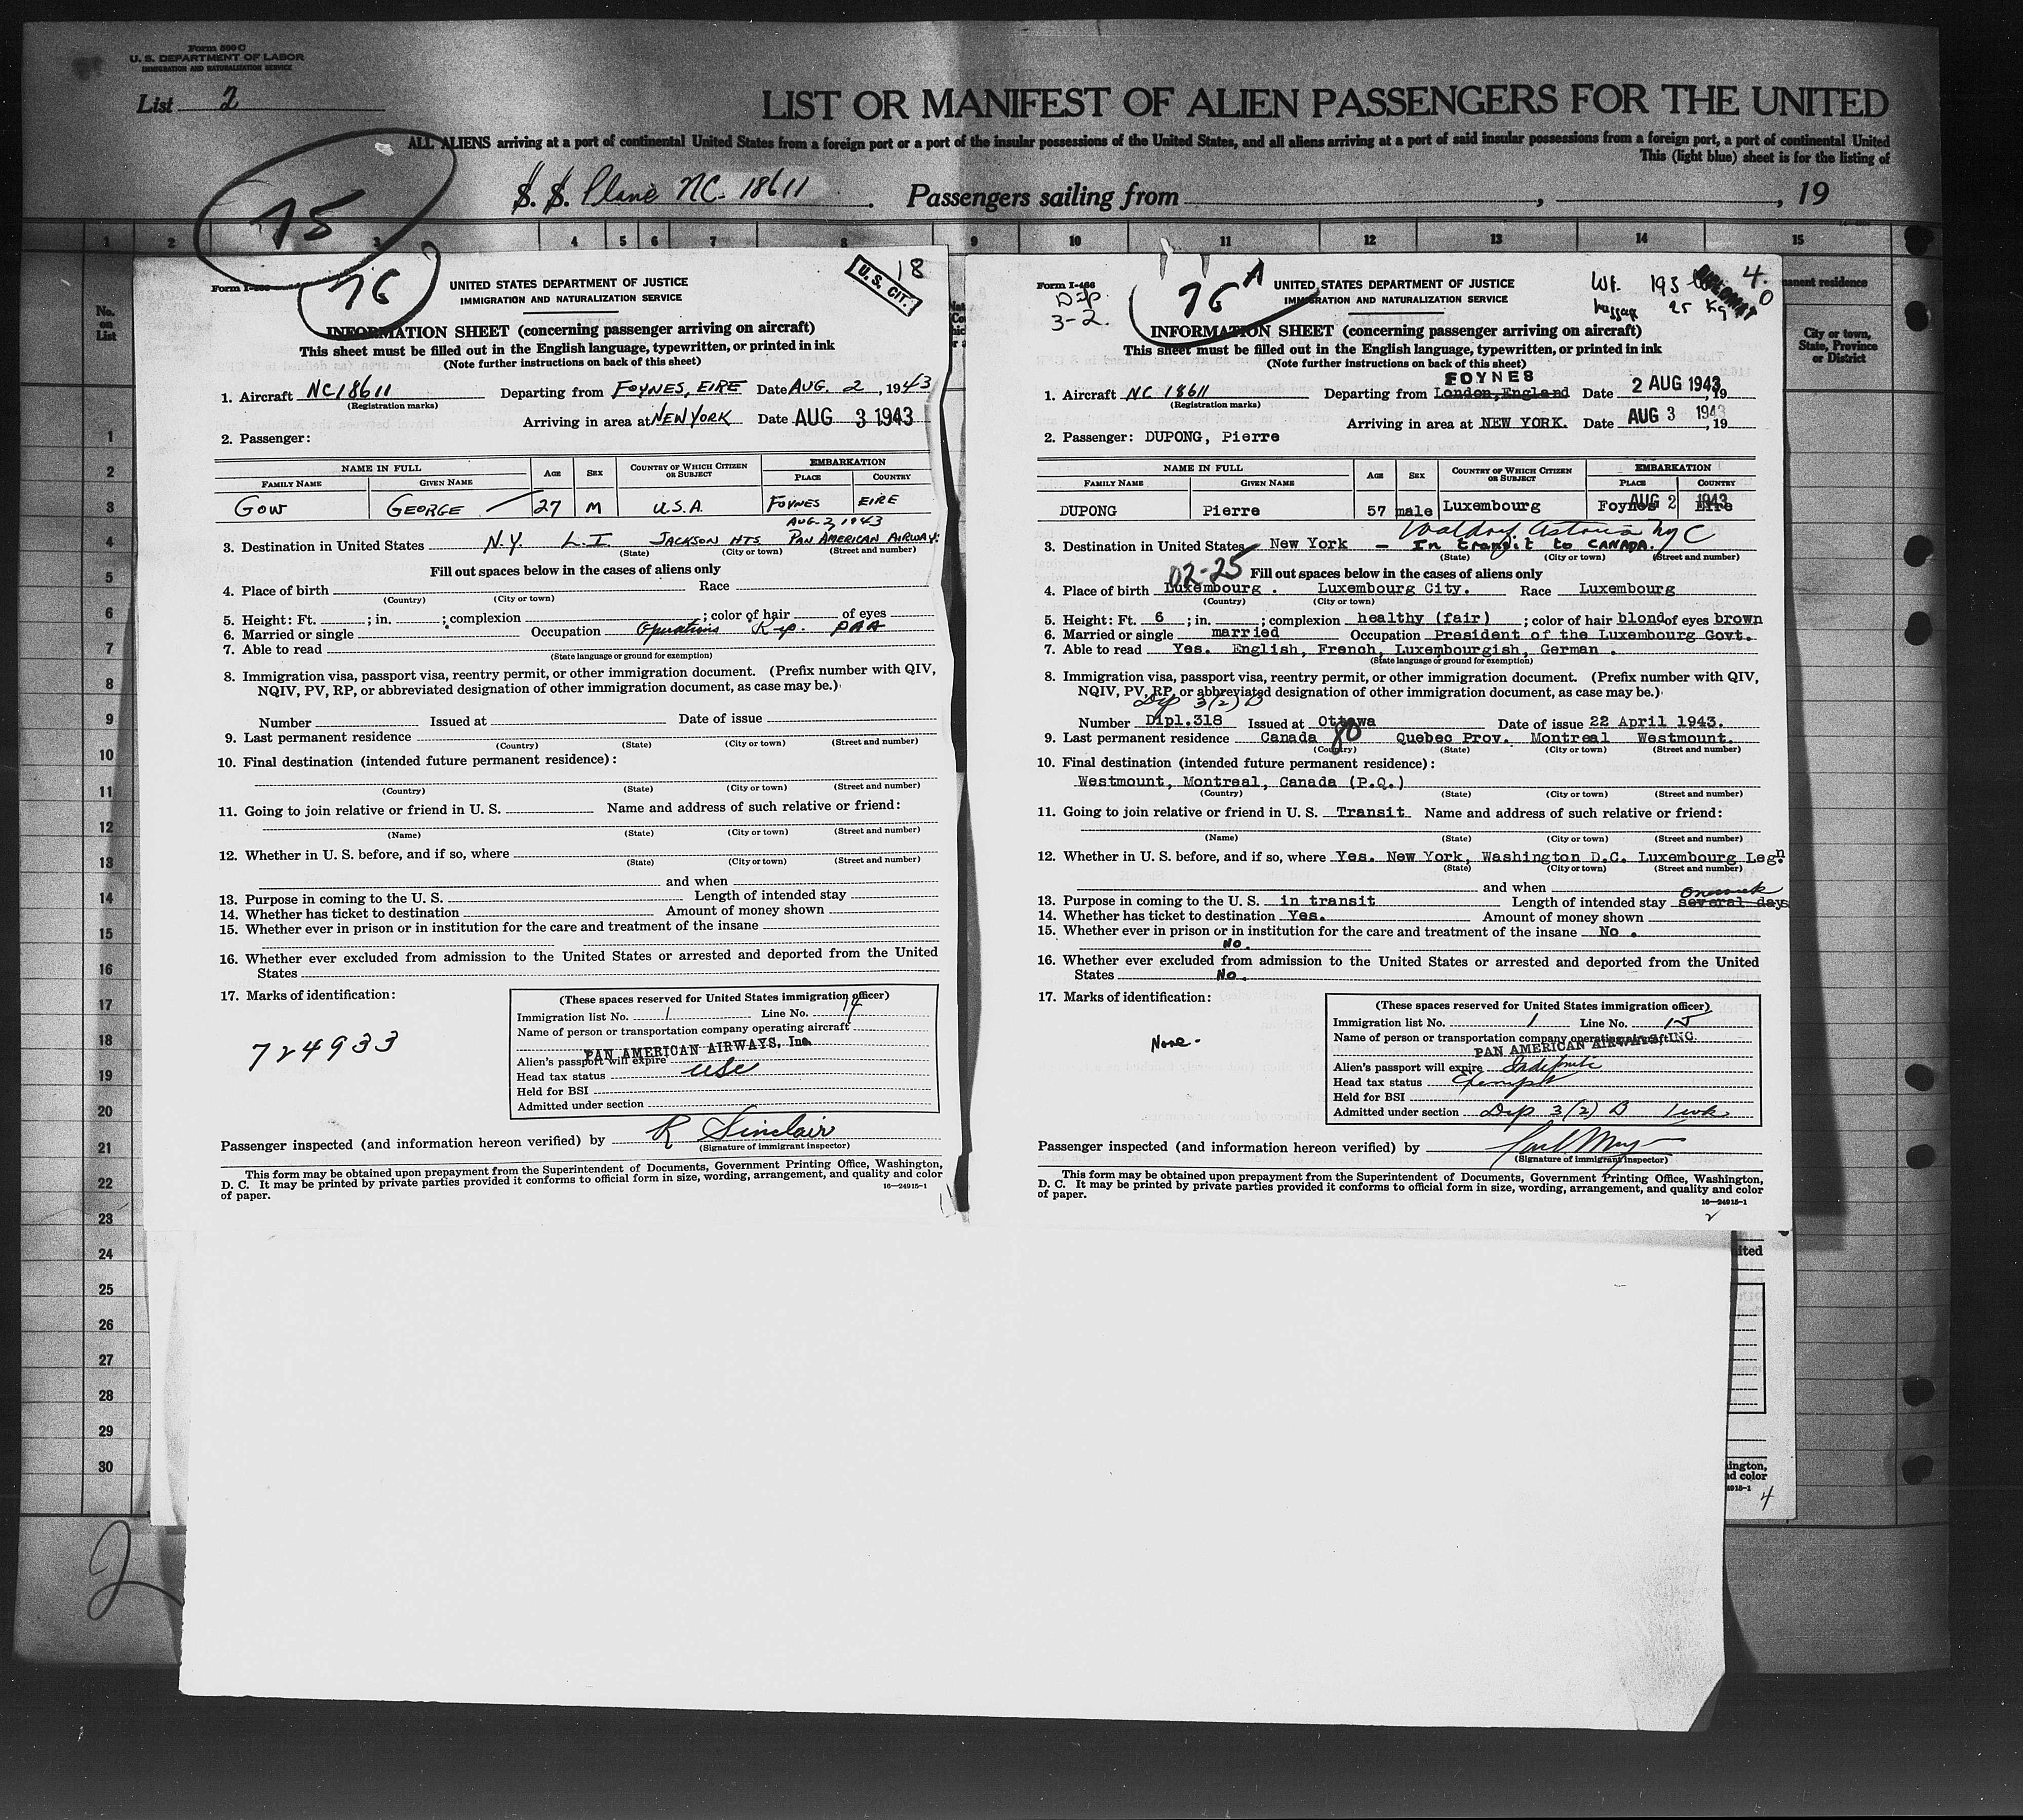 Form 500 C
U. S. DEPARTMENT OF LABOR
IMMIGRATION AND NATURALIZATION SERVICE
List 2
LIST OR MANIFEST OF ALIEN PASSENGERS FOR THE UNITED
ALL ALIENS arriving at a port of continental United States from a foreign port or a port of the insular possessions of the United States, and all aliens arriving at a port of said insular possessions from a foreign port, a port of continental United
This (light blue) sheet is for the listing of
75
S. S. Plane NC-18611. Passengers sailing from , , 19
1 2 3 4 5 6 7 8 9 10 11 12 13 14 15
No. on List
manent residence
City or town, State, Province or District
1
2
3
4
5
6
7
8
9
10
11
12
13
14
15
16
17
18
19
20
21
22
23
24
25
26
27
28
29
30
2
Form I-466
76
18
U.S. CIT.
UNITED STATES DEPARTMENT OF JUSTICE
IMMIGRATION AND NATURALIZATION SERVICE
INFORMATION SHEET (concerning passenger arriving on aircraft)
This sheet must be filled out in the English language, typewritten, or printed in ink
(Note further instructions on back of this sheet)
1. Aircraft NC18611 Departing from FOYNES, EIRE Date AUG. 2, 1943
(Registration marks)
Arriving in area at NEW YORK Date AUG 3 1943
2. Passenger:
NAME IN FULL AGE SEX COUNTRY OF WHICH CITIZEN OR SUBJECT EMBARKATION
FAMILY NAME GIVEN NAME PLACE COUNTRY
GOW GEORGE 27 M U.S.A. FOYNES EIRE
AUG. 2, 1943
3. Destination in United States N.Y. L.I. JACKSON HTS PAN AMERICAN AIRWAY.
(State) (City or town) (Street and number)
Fill out spaces below in the cases of aliens only
4. Place of birth Race
(Country) (City or town)
5. Height: Ft. ; in. ; complexion ; color of hair of eyes
6. Married or single Occupation Operations Rep. PAA
7. Able to read
(State language or ground for exemption)
8. Immigration visa, passport visa, reentry permit, or other immigration document. (Prefix number with QIV,
NQIV, PV, RP, or abbreviated designation of other immigration document, as case may be.)
Number Issued at Date of issue
9. Last permanent residence
(Country) (State) (City or town) (Street and number)
10. Final destination (intended future permanent residence):
(Country) (State) (City or town) (Street and number)
11. Going to join relative or friend in U. S. Name and address of such relative or friend:
(Name) (State) (City or town) (Street and number)
12. Whether in U. S. before, and if so, where
(State) (City or town) (Street and number)
and when
13. Purpose in coming to the U. S. Length of intended stay
14. Whether has ticket to destination Amount of money shown
15. Whether ever in prison or in institution for the care and treatment of the insane
16. Whether ever excluded from admission to the United States or arrested and deported from the United
States
17. Marks of identification:
724933
(These spaces reserved for United States immigration officer)
Immigration list No. 1 Line No. 14
Name of person or transportation company operating aircraft
PAN AMERICAN AIRWAYS, Inc.
Alien's passport will expire
Head tax status USC
Held for BSI
Admitted under section
Passenger inspected (and information hereon verified) by R Sinclair
(Signature of immigrant inspector)
This form may be obtained upon prepayment from the Superintendent of Documents, Government Printing Office, Washington,
D. C. It may be printed by private parties provided it conforms to official form in size, wording, arrangement, and quality and color
of paper.
16—24915-1
Form I-466
Dip.
3-2.
76 A
Wt. 193
25 Kg
4.
0
UNITED STATES DEPARTMENT OF JUSTICE
IMMIGRATION AND NATURALIZATION SERVICE
INFORMATION SHEET (concerning passenger arriving on aircraft)
This sheet must be filled out in the English language, typewritten, or printed in ink
(Note further instructions on back of this sheet)
FOYNES
1. Aircraft NC 18611 Departing from London, England Date 2 AUG 1943, 19
(Registration marks)
Arriving in area at NEW YORK. Date AUG 3 1943, 19
2. Passenger: DUPONG, Pierre
NAME IN FULL AGE SEX COUNTRY OF WHICH CITIZEN OR SUBJECT EMBARKATION
FAMILY NAME GIVEN NAME PLACE COUNTRY
DUPONG Pierre 57 male Luxembourg Foynes AUG 2 1943 Eire
Waldorf Astoria NYC
3. Destination in United States New York - In transit to CANADA.
(State) (City or town) (Street and number)
02-25 Fill out spaces below in the cases of aliens only
4. Place of birth Luxembourg. Luxembourg City. Race Luxembourg
(Country) (City or town)
5. Height: Ft. 6 ; in. ; complexion healthy (fair) ; color of hair blond of eyes brown
6. Married or single married Occupation President of the Luxembourg Govt.
7. Able to read Yes. English, French, Luxembourgish, German .
(State language or ground for exemption)
8. Immigration visa, passport visa, reentry permit, or other immigration document. (Prefix number with QIV,
NQIV, PV, RP, or abbreviated designation of other immigration document, as case may be.)
Dip 3(2) D
Number Dipl.318 Issued at Ottawa Date of issue 22 April 1943.
80
9. Last permanent residence Canada Quebec Prov. Montreal Westmount.
(Country) (State) (City or town) (Street and number)
10. Final destination (intended future permanent residence):
Westmount, Montreal, Canada (P.Q.)
(Country) (State) (City or town) (Street and number)
11. Going to join relative or friend in U. S. Transit Name and address of such relative or friend:
(Name) (State) (City or town) (Street and number)
12. Whether in U. S. before, and if so, where Yes. New York, Washington D.C. Luxembourg Legn.
(State) (City or town) (Street and number)
and when
One week
13. Purpose in coming to the U. S. in transit Length of intended stay several days
14. Whether has ticket to destination Yes. Amount of money shown
15. Whether ever in prison or in institution for the care and treatment of the insane No .
No.
16. Whether ever excluded from admission to the United States or arrested and deported from the United
States No.
17. Marks of identification:
None.
(These spaces reserved for United States immigration officer)
Immigration list No. 1 Line No. 15
Name of person or transportation company operating aircraft
PAN AMERICAN AIRWAYS, INC.
Alien's passport will expire Indefinite
Head tax status Exempt
Held for BSI
Admitted under section Dip 3(2) D 1 wk.
Passenger inspected (and information hereon verified) by
(Signature of immigrant inspector)
This form may be obtained upon prepayment from the Superintendent of Documents, Government Printing Office, Washington,
D. C. It may be printed by private parties provided it conforms to official form in size, wording, arrangement, and quality and color
of paper.
16—24915-1
2
ited
ington,
d color
4915-1
4